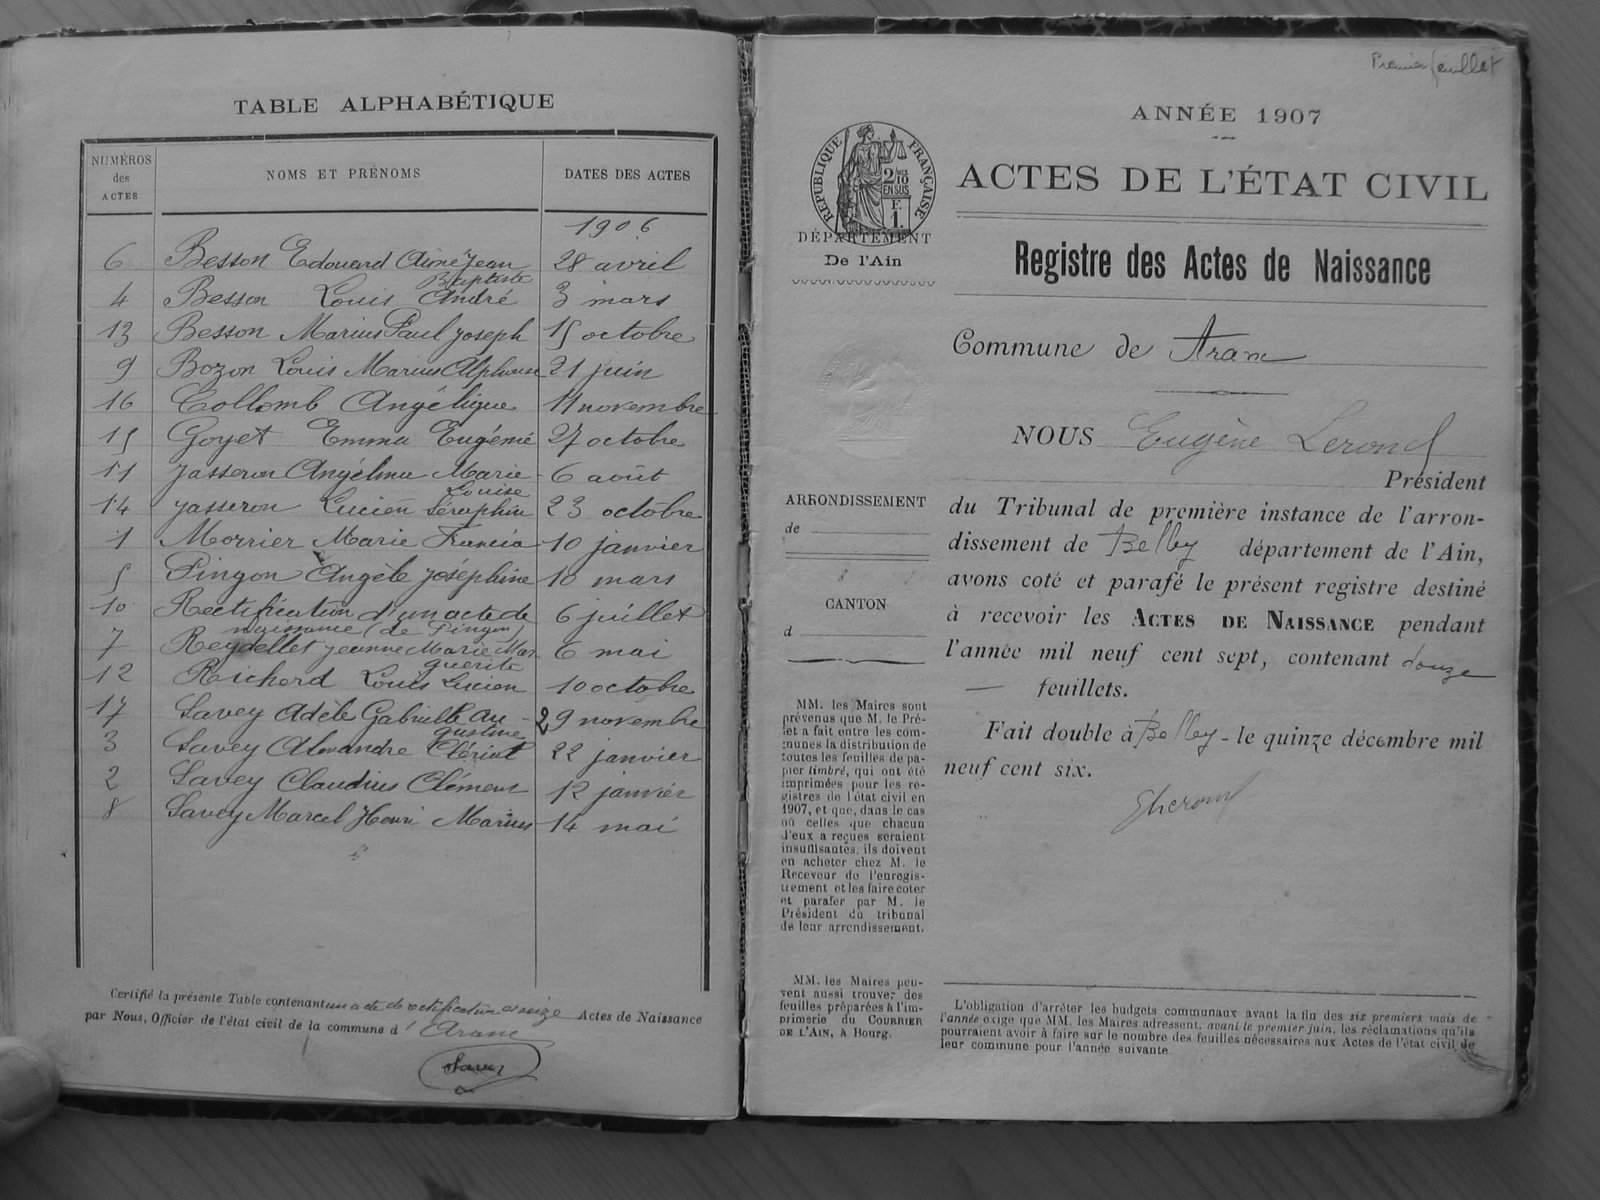 TABLE ALPHABÉTIQUE
NUMÉROS des ACTES
NOMS ET PRÉNOMS
DATES DES ACTES
1906
6 Besson Edouard Aimé Jean 28 avril
Baptiste
4 Besson Louis André 3 mars
13 Besson Marius Paul Joseph 15 octobre
9 Bozon Louis Marius Alphonse 21 juin
16 Collomb Angélique 11 novembre
15 Goyet Emma Eugénie 27 octobre
11 Jasseron Angélina Marie 6 août
Louise
14 Jasseron Lucien Séraphin 23 octobre
1 Morrier Marie Francia 10 janvier
5 Pingon Angèle Joséphine 10 mars
10 Rectification d'un acte de 6 juillet
naissance (de Pingon)
7 Reydellet Jeanne Marie Mar- 6 mai
guerite
12 Richerd Louis Lucien 10 octobre
17 Savey Adèle Gabrielle Au- 29 novembre
gustine
3 Savey Alexandre 22 janvier
2 Savey Claudius Clément 12 janvier
8 Savey Marcel Henri Marius 14 mai
Certifié la présente Table contenant un acte de rectification et seize Actes de Naissance
par Nous, Officier de l'état civil de la commune d' Aranc
Savey
Premier feuillet
ANNÉE 1907
RÉPUBLIQUE FRANÇAISE
2 DES 10 EN SUS
F. 1
DÉPARTEMENT
De l'Ain
ACTES DE L'ÉTAT CIVIL
Registre des Actes de Naissance
Commune de Aranc
NOUS Eugène Lerond
Président
du Tribunal de première instance de l'arron-
dissement de Belley département de l'Ain,
avons coté et parafé le présent registre destiné
à recevoir les ACTES DE NAISSANCE pendant
l'année mil neuf cent sept, contenant douze
— feuillets.
Fait double à Belley - le quinze décembre mil
neuf cent six.
ARRONDISSEMENT
de
CANTON
d
MM. les Maires sont
prévenus que M. le Pré-
fet a fait entre les com-
munes la distribution de
toutes les feuilles de pa-
pier timbré, qui ont été
imprimées pour les re-
gistres de l'état civil en
1907, et que, dans le cas
où celles que chacun
d'eux a reçues seraient
insuffisantes, ils doivent
en acheter chez M. le
Receveur de l'enregis-
trement et les faire coter
et parafer par M. le
Président du tribunal
de leur arrondissement.
MM. les Maires peu-
vent aussi trouver des
feuilles préparées à l'im-
primerie du COURRIER
DE L'AIN, à Bourg.
L'obligation d'arrêter les budgets communaux avant la fin des six premiers mois de
l'année exige que MM. les Maires adressent, avant le premier juin, les réclamations qu'ils
pourraient avoir à faire sur le nombre des feuilles nécessaires aux Actes de l'état civil de
leur commune pour l'année suivante.